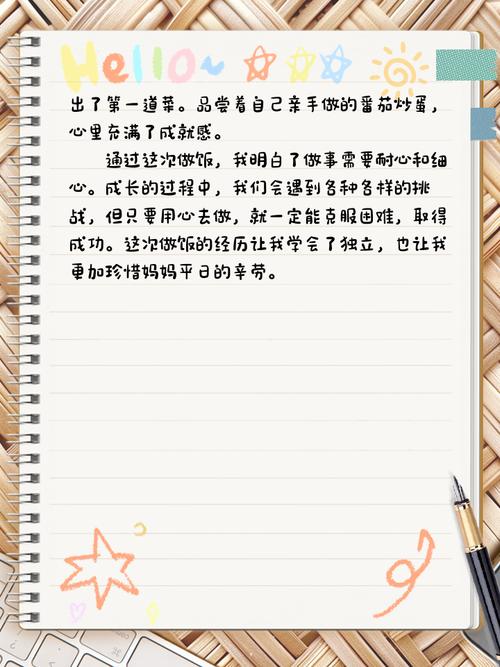 Hello~
出了第一道菜。品尝着自己亲手做的番茄炒蛋，
心里充满了成就感。
通过这次做饭，我明白了做事需要耐心和细
心。成长的过程中，我们会遇到各种各样的挑
战，但只要用心去做，就一定能克服困难，取得
成功。这次做饭的经历让我学会了独立，也让我
更加珍惜妈妈平日的辛劳。